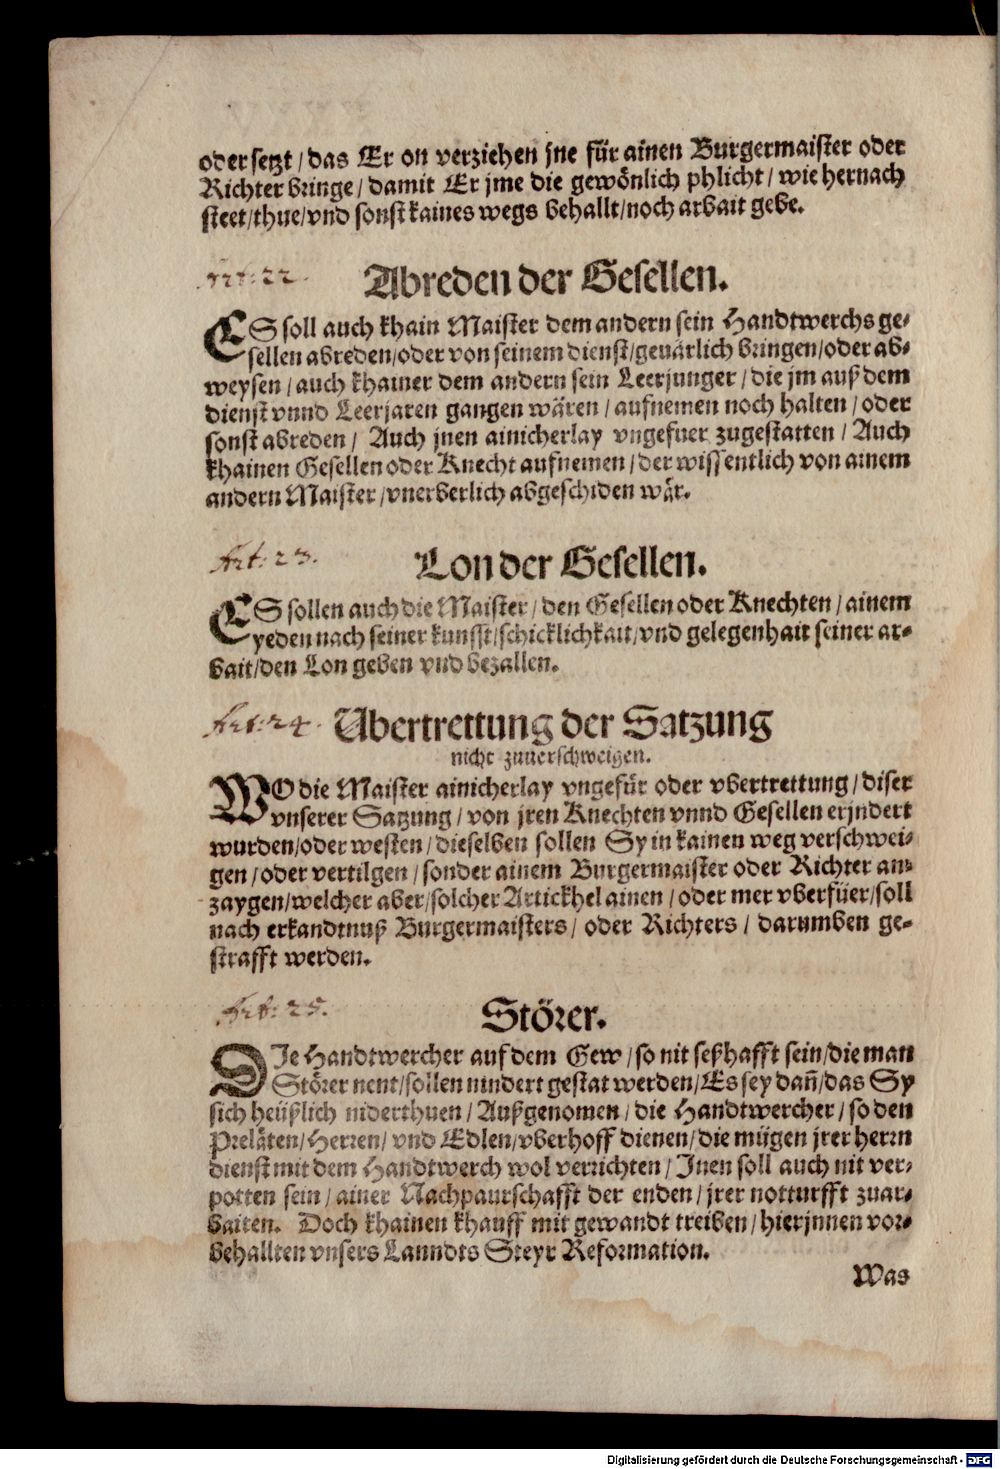 oder setzt / das Er on verziehen jne für ainen Burgermaister oder
Richter bringe / damit Er jme die gewönlich phlicht / wie hernach
steet / thue / vnd sonst kaines wegs behallt / noch arbait gebe.
Art: 22.
Abreden der Gesellen.
ES soll auch khain Maister dem andern sein Handtwerchs ge-
sellen abreden / oder von seinem dienst / geuärlich bringen / oder ab-
weysen / auch khainer dem andern sein Leerjunger / die jm auß dem
dienst vnnd Leerjaren gangen wären / aufnemen noch halten / oder
sonst abreden / Auch jnen ainicherlay vngefuer zugestatten / Auch
khainen Gesellen oder Knecht aufnemen / der wissentlich von ainem
andern Maister / vnerberlich abgeschiden wär.
Art: 23.
Lon der Gesellen.
ES sollen auch die Maister / den Gesellen oder Knechten / ainem
yeden nach seiner kunsst / schicklichkait / vnd gelegenhait seiner ar-
bait / den Lon geben vnd bezallen.
Art: 24.
Vbertrettung der Satzung
nicht zuuerschweigen.
WO die Maister ainicherlay vngefür oder vbertrettung / diser
vnserer Satzung / von jren Knechten vnnd Gesellen erjndert
wurden / oder westen / dieselben sollen Sy in kainen weg verschwei-
gen / oder vertilgen / sonder ainem Burgermaister oder Richter an-
zaygen / welcher aber / solcher Artickhel ainen / oder mer vberfüer / soll
nach erkandtnuß Burgermaisters / oder Richters / darumben ge-
strafft werden.
Art: 25.
Störer.
DIe Handtwercher auf dem Gew / so nit seßhafft sein / die man
Störer nent / sollen nindert gestat werden / Es sey dañ / das Sy
sich heüßlich niderthuen / Außgenomen / die Handtwercher / so den
Preläten / Herren / vnd Edlen / vberhoff dienen / die mügen jrer herrn
dienst mit dem Handtwerch wol verrichten / Jnen soll auch nit ver-
potten sein / ainer Nachpaurschafft der enden / jrer notturfft zuar-
baiten. Doch khainen khauff mit gewandt treiben / hierjnnen vor-
behallten vnsers Lanndts Steyr Reformation.
Was
Digitalisierung gefördert durch die Deutsche Forschungsgemeinschaft - DFG